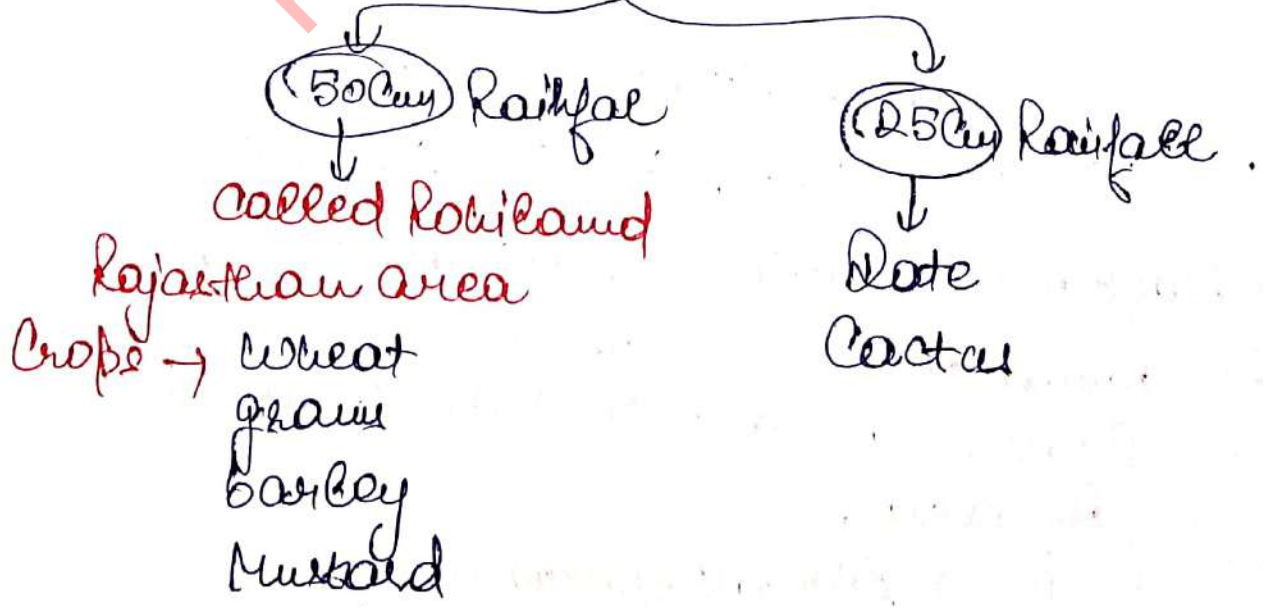 50Cm Rainfal
called Rohiland
Rajasthan area
Crops → wheat
grams
barley
Mustard
25Cm Rainfall.
Date
Cactus